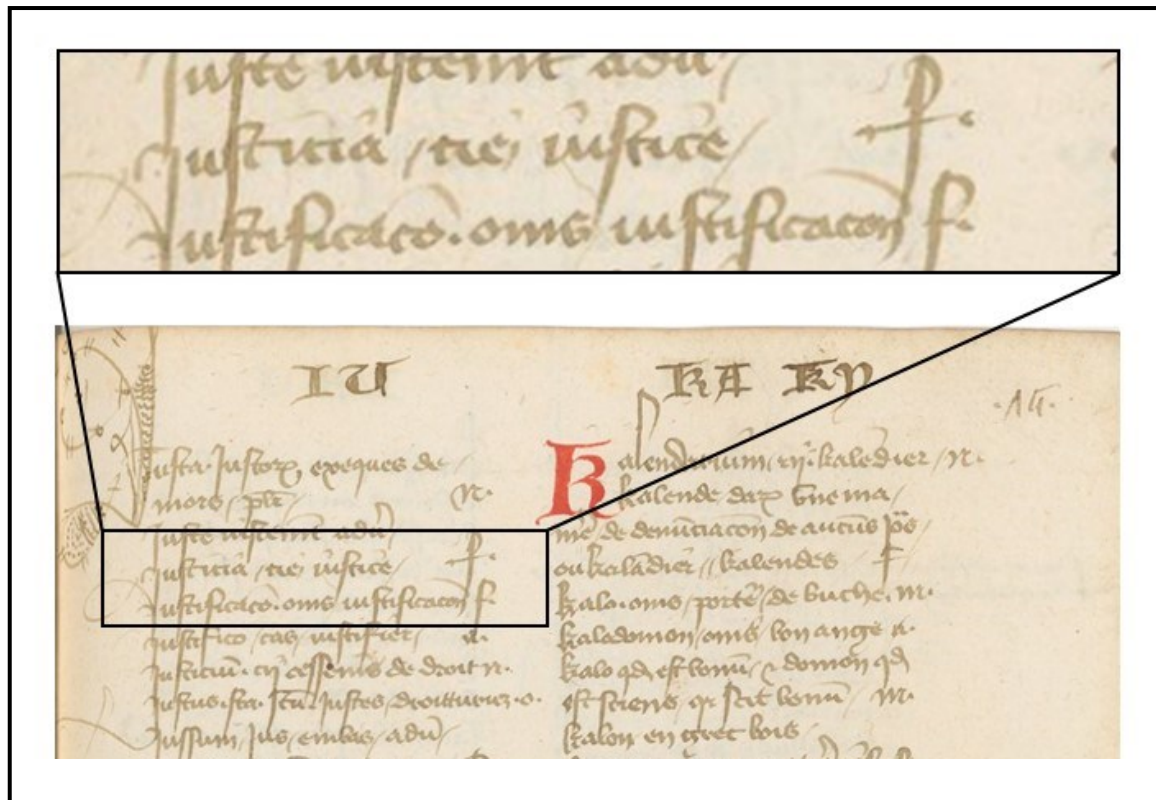 Iuste iustemt adu͛
Iusticia, cie, iustice, p.
Iustificacō. onis iustificacōn f.
IU
KA KY
Iusta. Iustoꝝ, exeques de
mors, pl̄r n.
Iuste iustemt adu͛
Iusticia, cie, iustice, p.
Iustificacō. onis iustificacōn f.
Iustifico, cas, iustifier, a.
Iusticiū. cij cessemēs de droit n.
Iustus. sta. stū. Iustes, droitturiez. o.
Iussum, Ius, embas, adū,
Kalendarium, rij. kalēdier, n.
Kalende daꝝ vne ma,
de denūciacōn de aucūs
ou kalādier, kalendes f
Kalo. onis, porteͬ, de buche. m.
Kalādomon, onis, bon ange n.
Kalo qd est bonū, ⁊ domon qd
est sciens, qr scit bonū, m.
Kalon en grec bois,